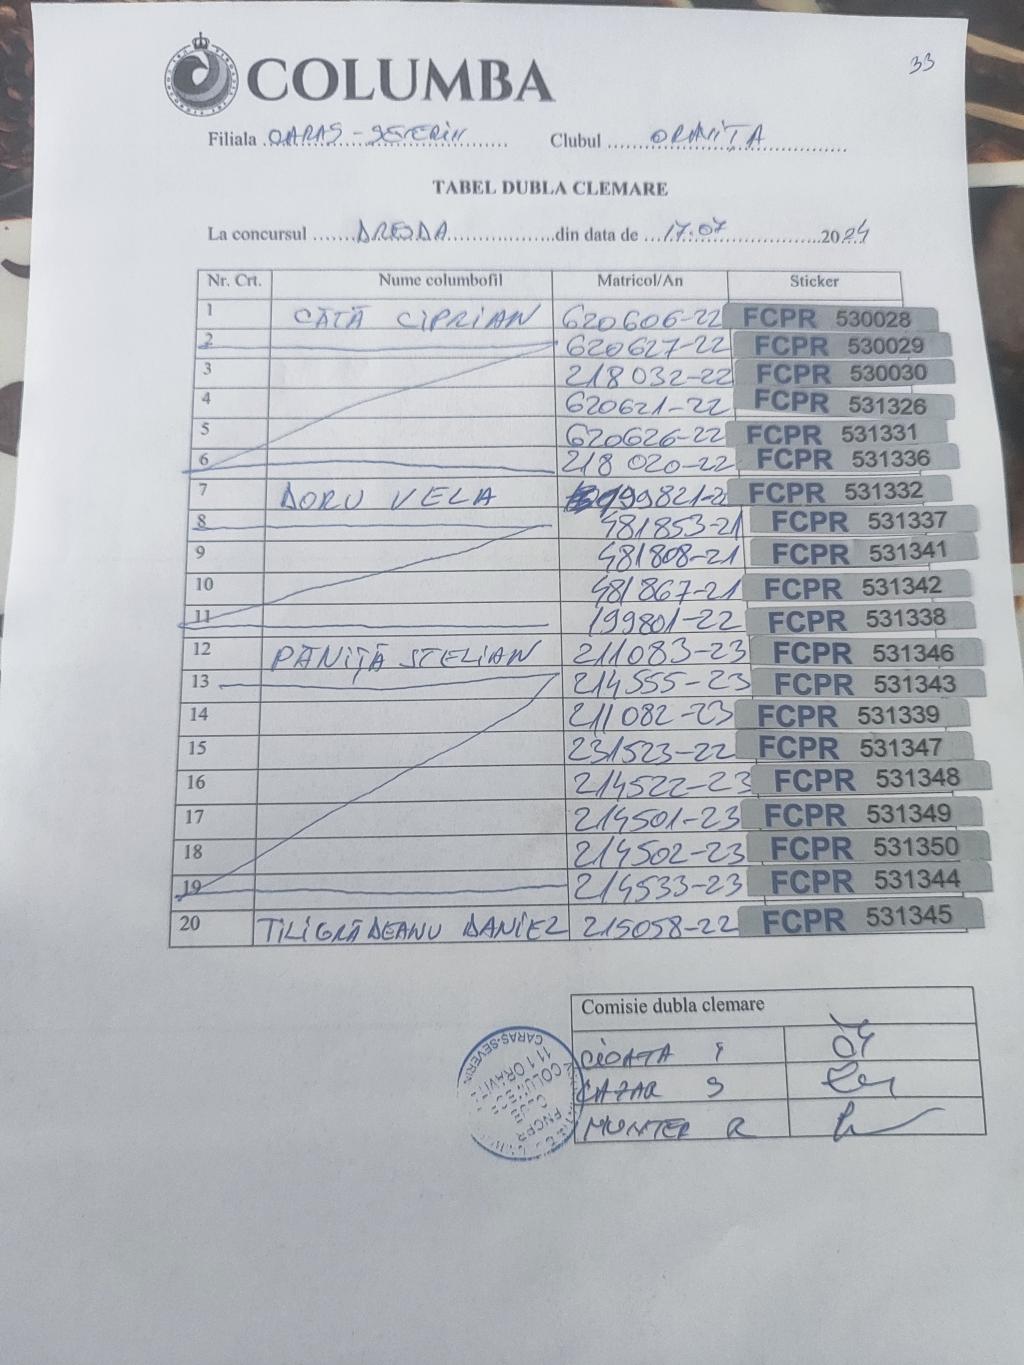 33
COLUMBA
Filiala CARAS-SEVERIN Clubul ORAVIȚA
TABEL DUBLA CLEMARE
La concursul DRESDA din data de 17.07 2024
Nr. Crt. Nume columbofil Matricol/An Sticker
1 CĂTĂ CIPRIAN 620606-22 FCPR 530028
2 620627-22 FCPR 530029
3 218032-22 FCPR 530030
4 620621-22 FCPR 531326
5 620626-22 FCPR 531331
6 218020-22 FCPR 531336
7 DORU VELA 199821-2 FCPR 531332
8 481853-21 FCPR 531337
9 481808-21 FCPR 531341
10 481867-21 FCPR 531342
11 199801-22 FCPR 531338
12 PĂNIȚĂ STELIAN 211083-23 FCPR 531346
13 214555-23 FCPR 531343
14 211082-23 FCPR 531339
15 231523-22 FCPR 531347
16 214522-23 FCPR 531348
17 214501-23 FCPR 531349
18 214502-23 FCPR 531350
19 214533-23 FCPR 531344
20 TILIGRĂDEANU DANIEL 215058-22 FCPR 531345
Comisie dubla clemare
CIOATA
CAZAR S
MUNTER R
CARAS-SEVERIN
111 ORAVITA
FNCPR